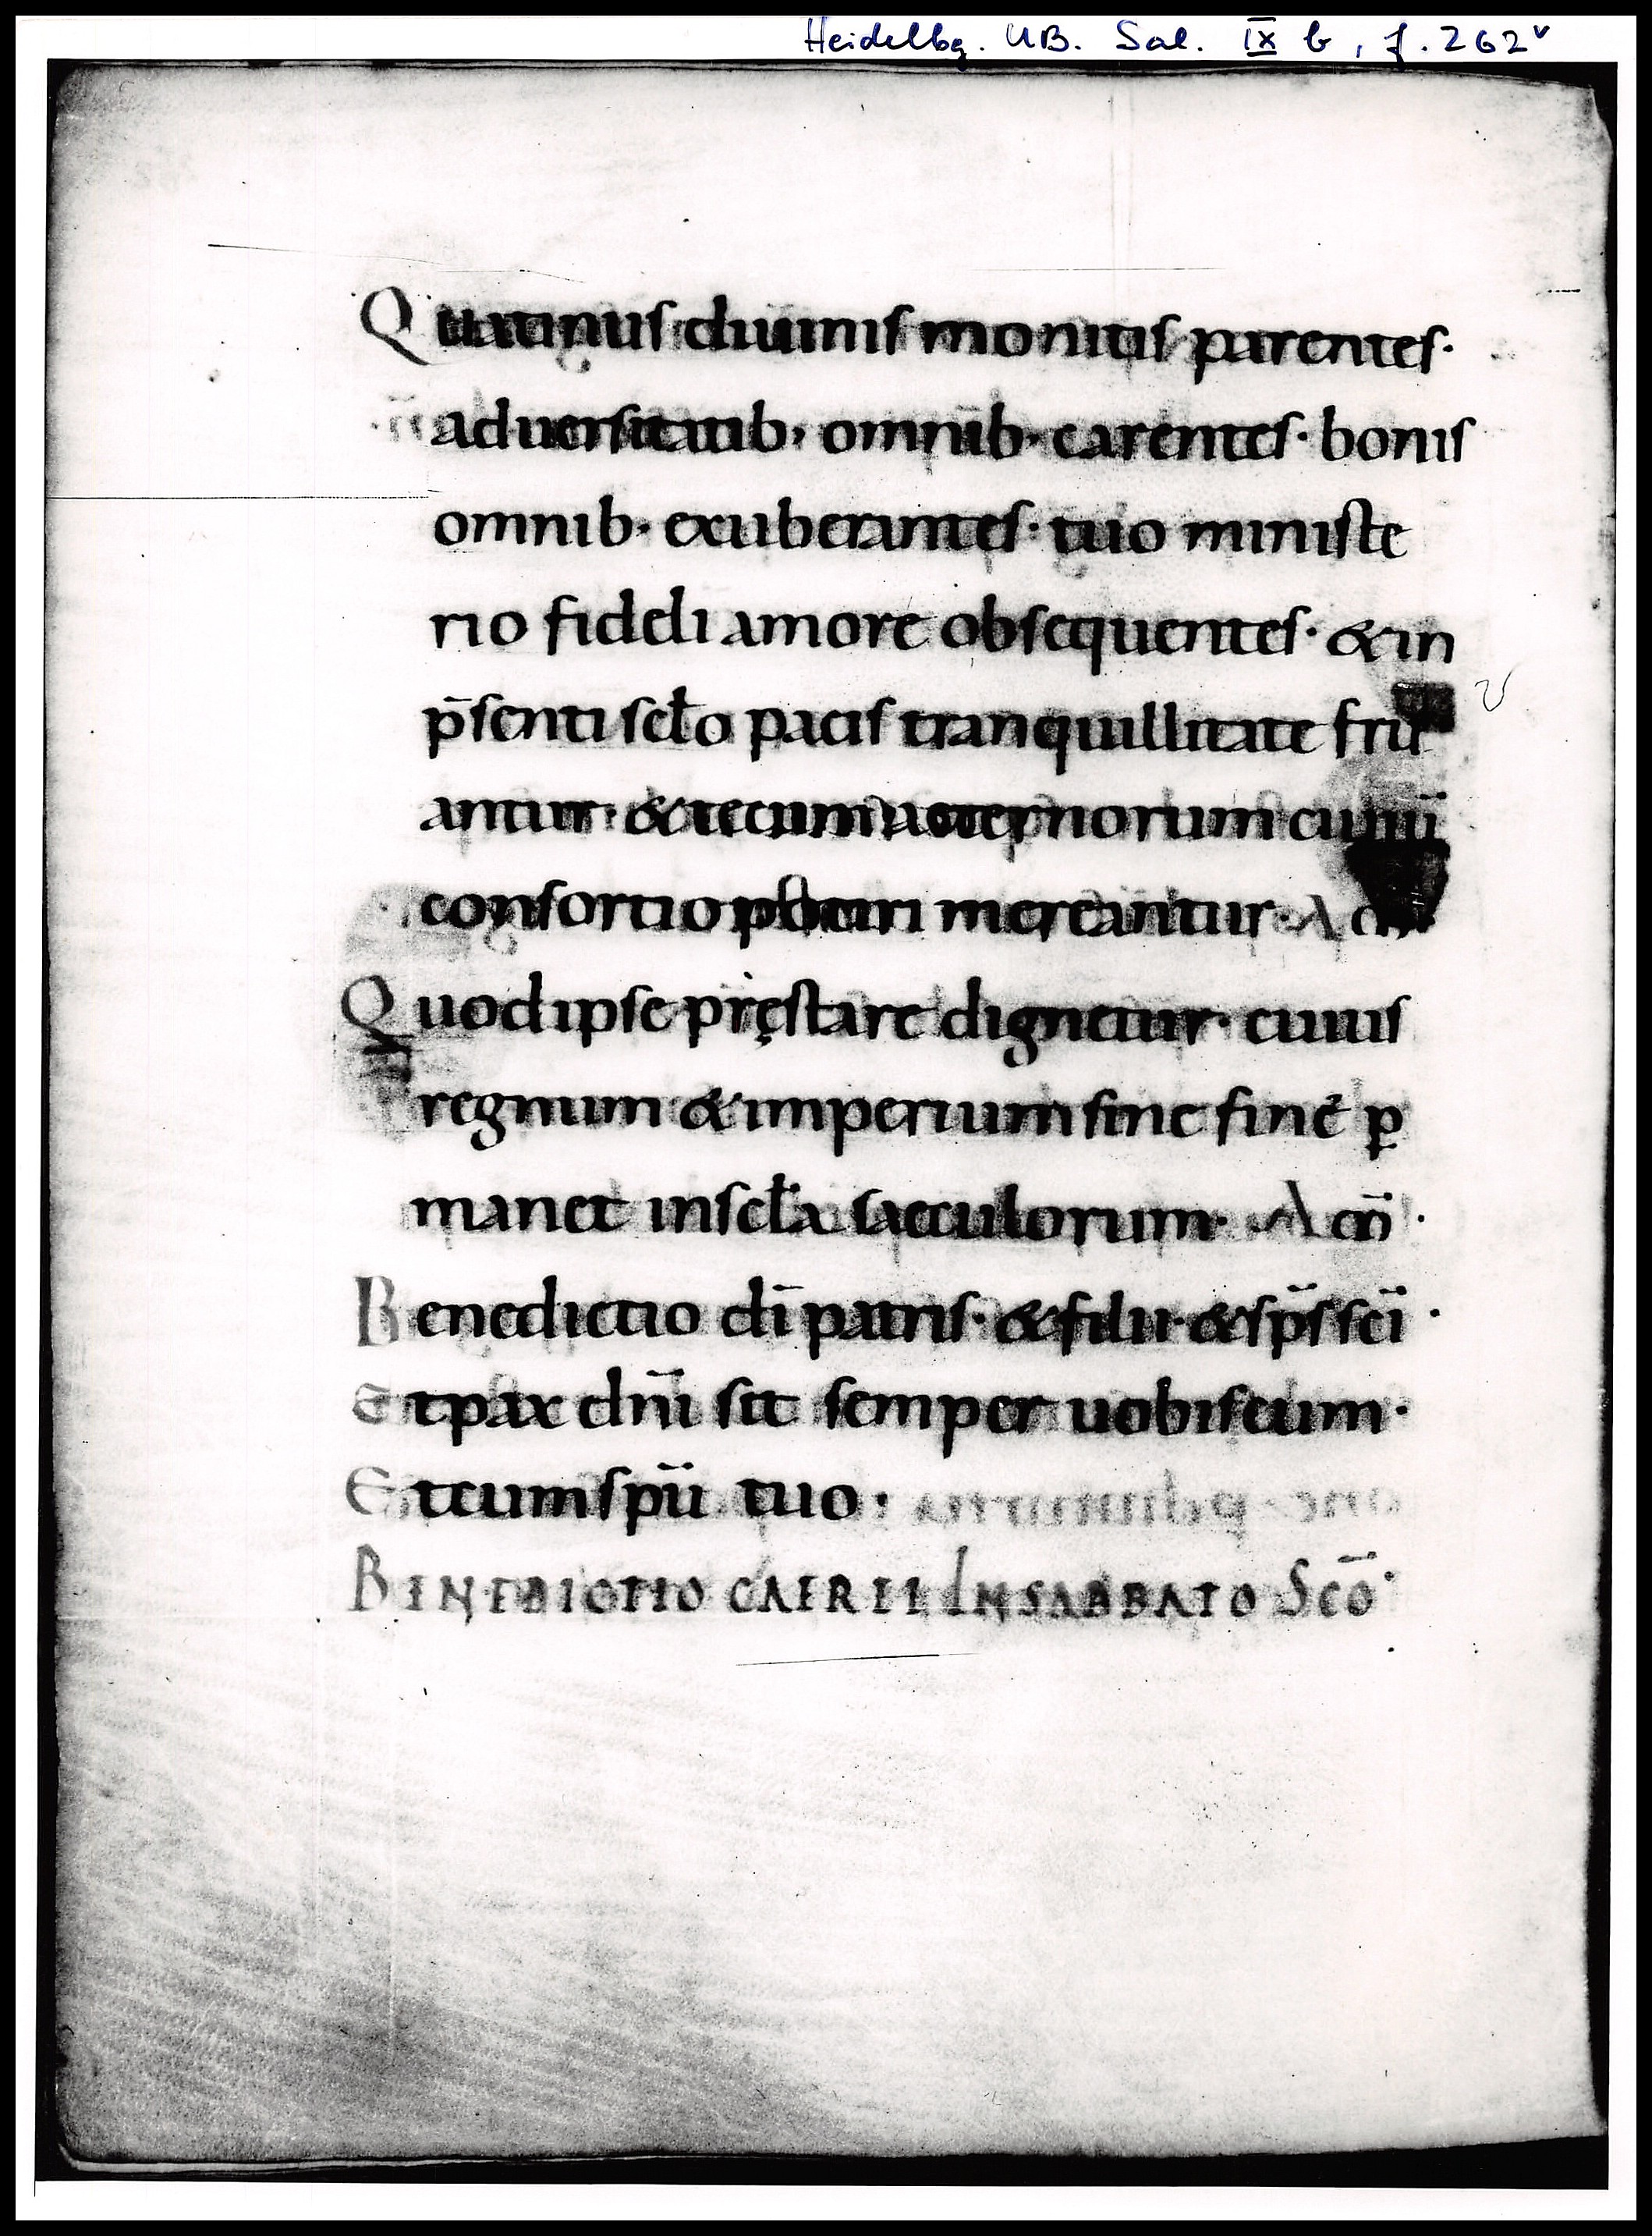 Heidelbg. UB. Sal. IX b, f. 262v
Quatinus diuinis monitis parentes·
aduersitatib· omnib· carentes· bonis
omnib· exuberantes· tuo ministe
rio fideli amore obsequentes· & in
p̄senti sclo pacis tranquillitate fru
antur· & tecum aeternorum ciuiū
consortio potiri mereantur· Am̄
Quod ipse pręstare dignetur· cuius
regnum & imperium sine fine p̱
manet in scła saeculorum· Am̄·
Benedictio dī patris· & filii· & sp̄s scī·
Et pax dn̄i sit semper uobiscum·
Et cum spū tuo·
BENEDICTIO CAEREI IN SABBATO Scō·